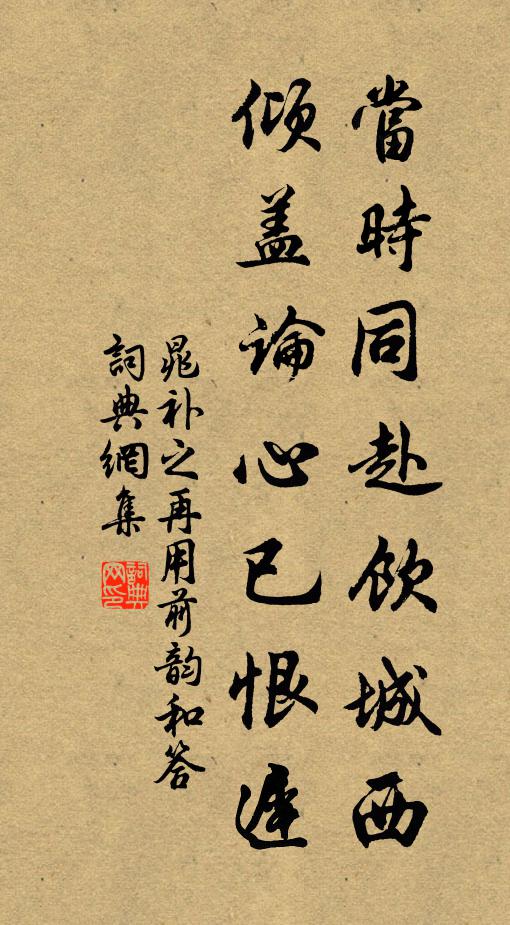 當時同赴飲城西
傾蓋論心已恨遲
晁补之再用前韵和答
詞典網集
詞典網印